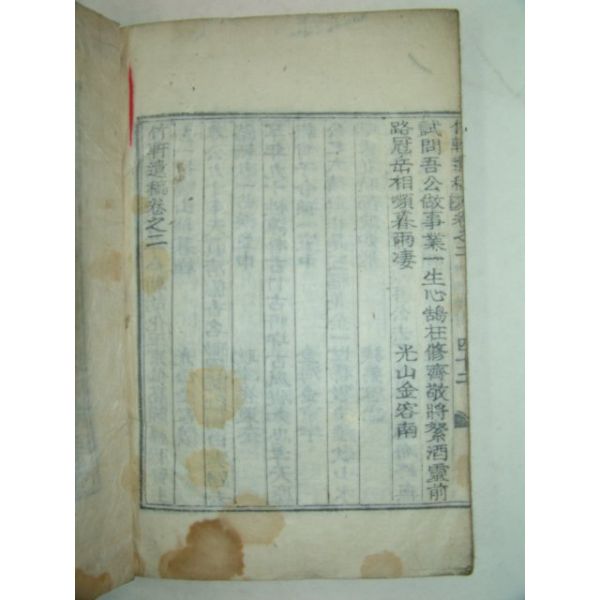 竹軒遺稿 卷之二 四十二
試問吾公做事業一生心鵠在修齊敬將絮酒靈前
路冠岳相頻暮雨凄
光山金容南
竹軒遺稿卷之二